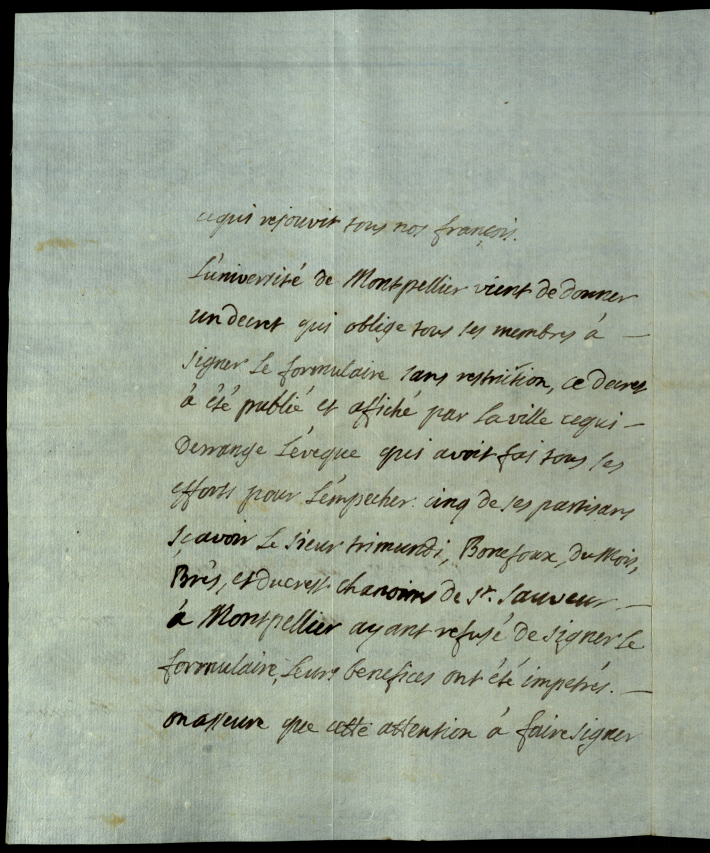 cequi rejouit tous nos françois.
L'université de Montpellier vient de donner
un decret qui oblige tous ses membres à —
signer le formulaire sans restriction, ce decret
à été publié et affiché par la ville cequi —
Derrange L'éveque qui avoit fai tous ses
efforts pour L'empecher. cinq de ses partisans
sçavoir le sieur trimundi, Bonefoux, du Mois,
Brés, et ducrest chanoines de St. Sauveur —
à Montpellier ayant refusé de signer le
formulaire, leurs benefices ont été impetrés. —
on asseure que cette attention à faire signer